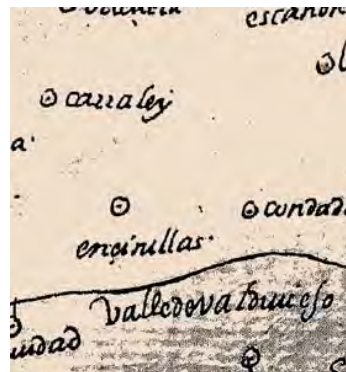 escanon
carraley
a
condad
encinillas
valledevaldivieso
uidad